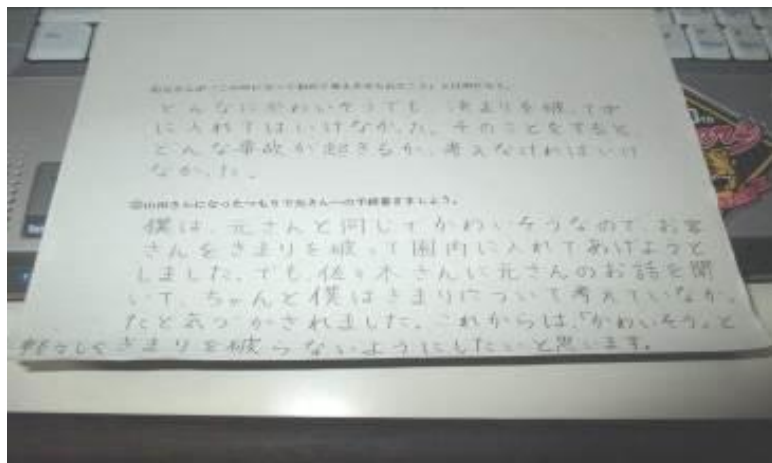 ①元さんが「この年になって初めて考えさせられたこと」とは何だろう。
どんなにかわいそうでも、決まりを破って中
に入れてはいけなかった。そのことをすると、
どんな事故が起きるか、考えなければいけ
なかった。
②山田さんになったつもりで元さんへの手紙書きましょう。
僕は、元さんと同じでかわいそうなので、お客
さんをきまりを破って園内に入れてあげようと
しました。でも、佐々木さんに元さんのお話を聞
いて、ちゃんと僕はきまりについて考えていなかっ
たと気づかされました。これからは、「かわいそう」と
軽々しくきまりを破らないようにしたいと思います。